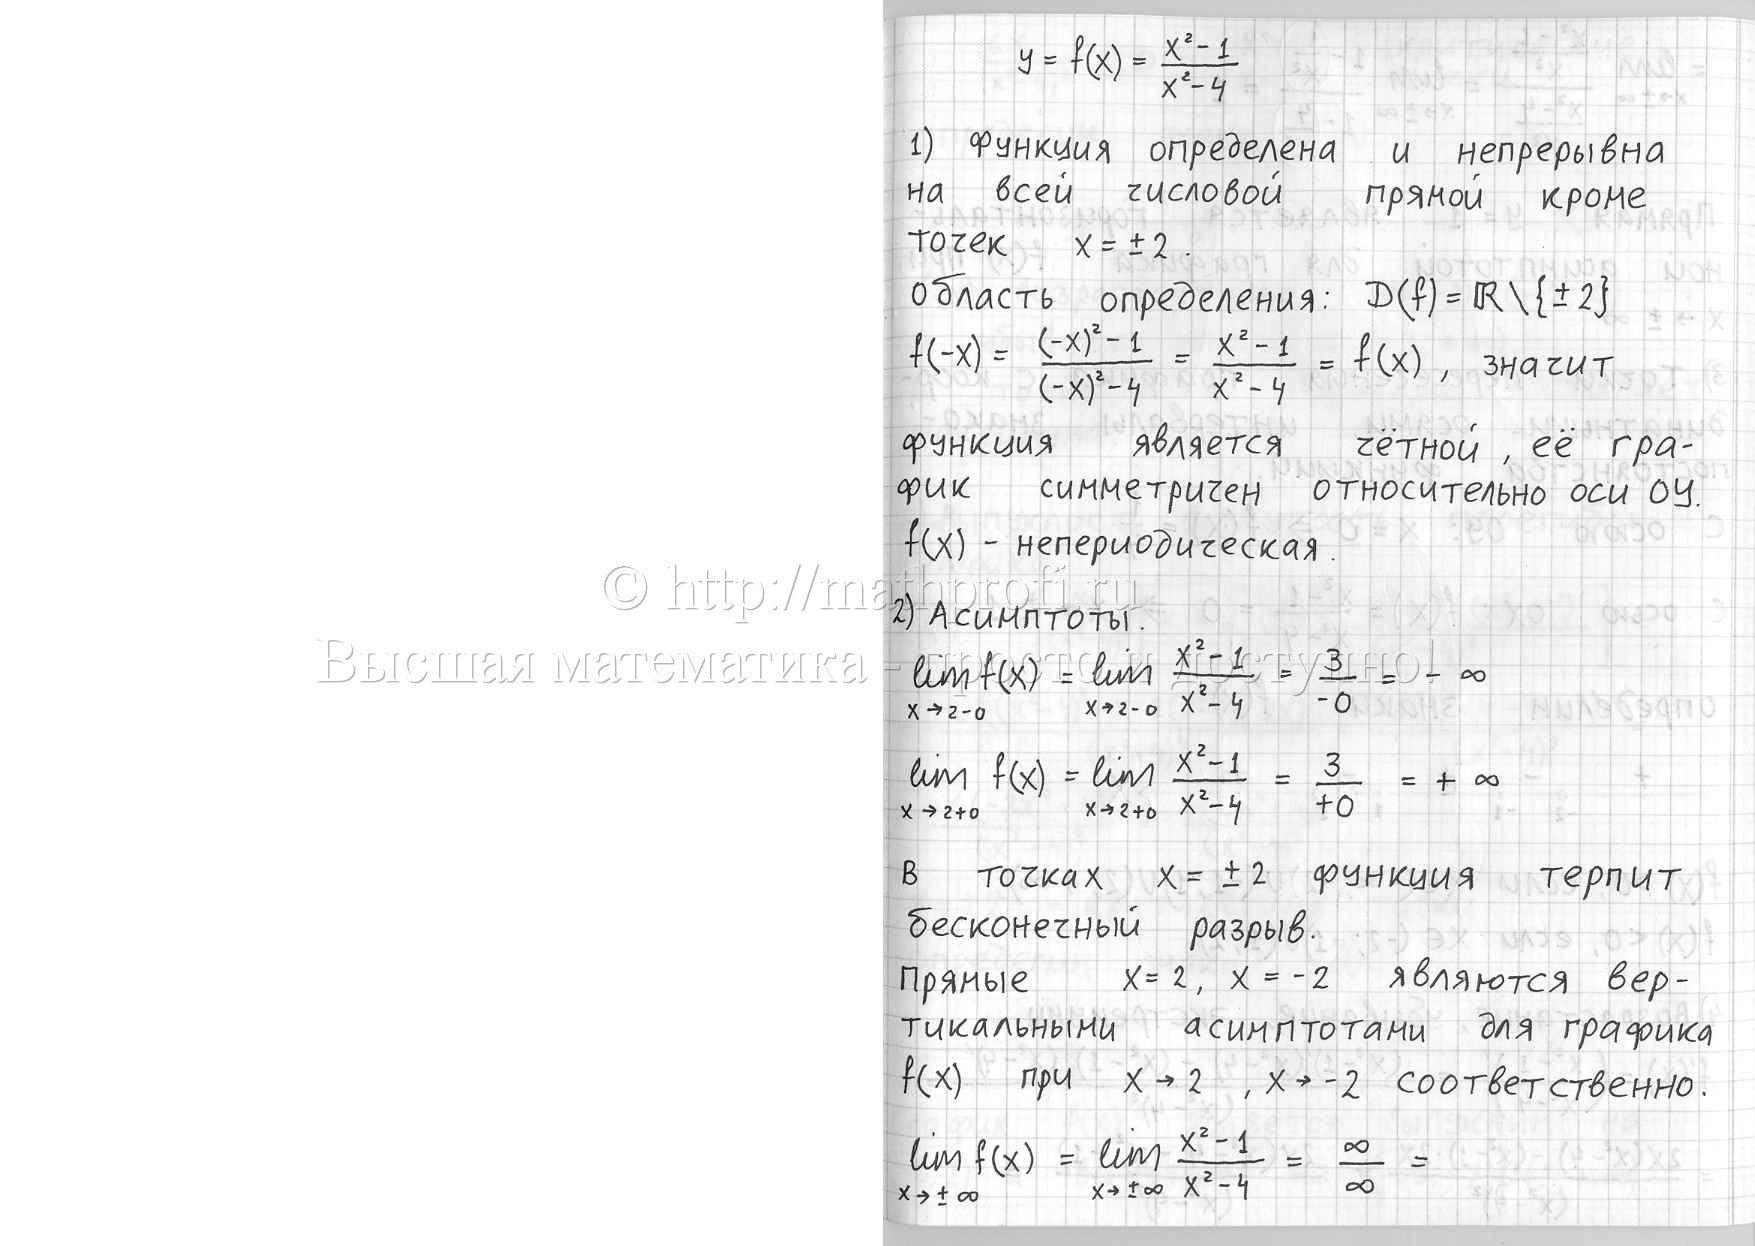 y = f(x) = (x² - 1)/(x² - 4)
1) Функция определена и непрерывна
на всей числовой прямой кроме
точек x = ± 2.
Область определения: D(f) = ℝ \ {± 2}
f(-x) = ((-x)² - 1)/((-x)² - 4) = (x² - 1)/(x² - 4) = f(x), значит
функция является чётной, её гра-
фик симметричен относительно оси OY.
f(x) - непериодическая.
© http://mathprofi.ru
2) Асимптоты.
Высшая математика - просто и доступно!
lim f(x) = lim (x² - 1)/(x² - 4) = 3/-0 = - ∞
x→2-0 x→2-0
lim f(x) = lim (x² - 1)/(x² - 4) = 3/+0 = + ∞
x→2+0 x→2+0
В точках x = ± 2 функция терпит
бесконечный разрыв.
Прямые x = 2, x = -2 являются вер-
тикальными асимптотами для графика
f(x) при x → 2, x → -2 соответственно.
lim f(x) = lim (x² - 1)/(x² - 4) = ∞/∞ =
x→±∞ x→±∞